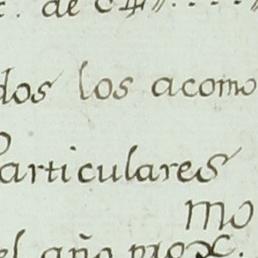 de
dos los acomo
Particulares
mo
el año prox.